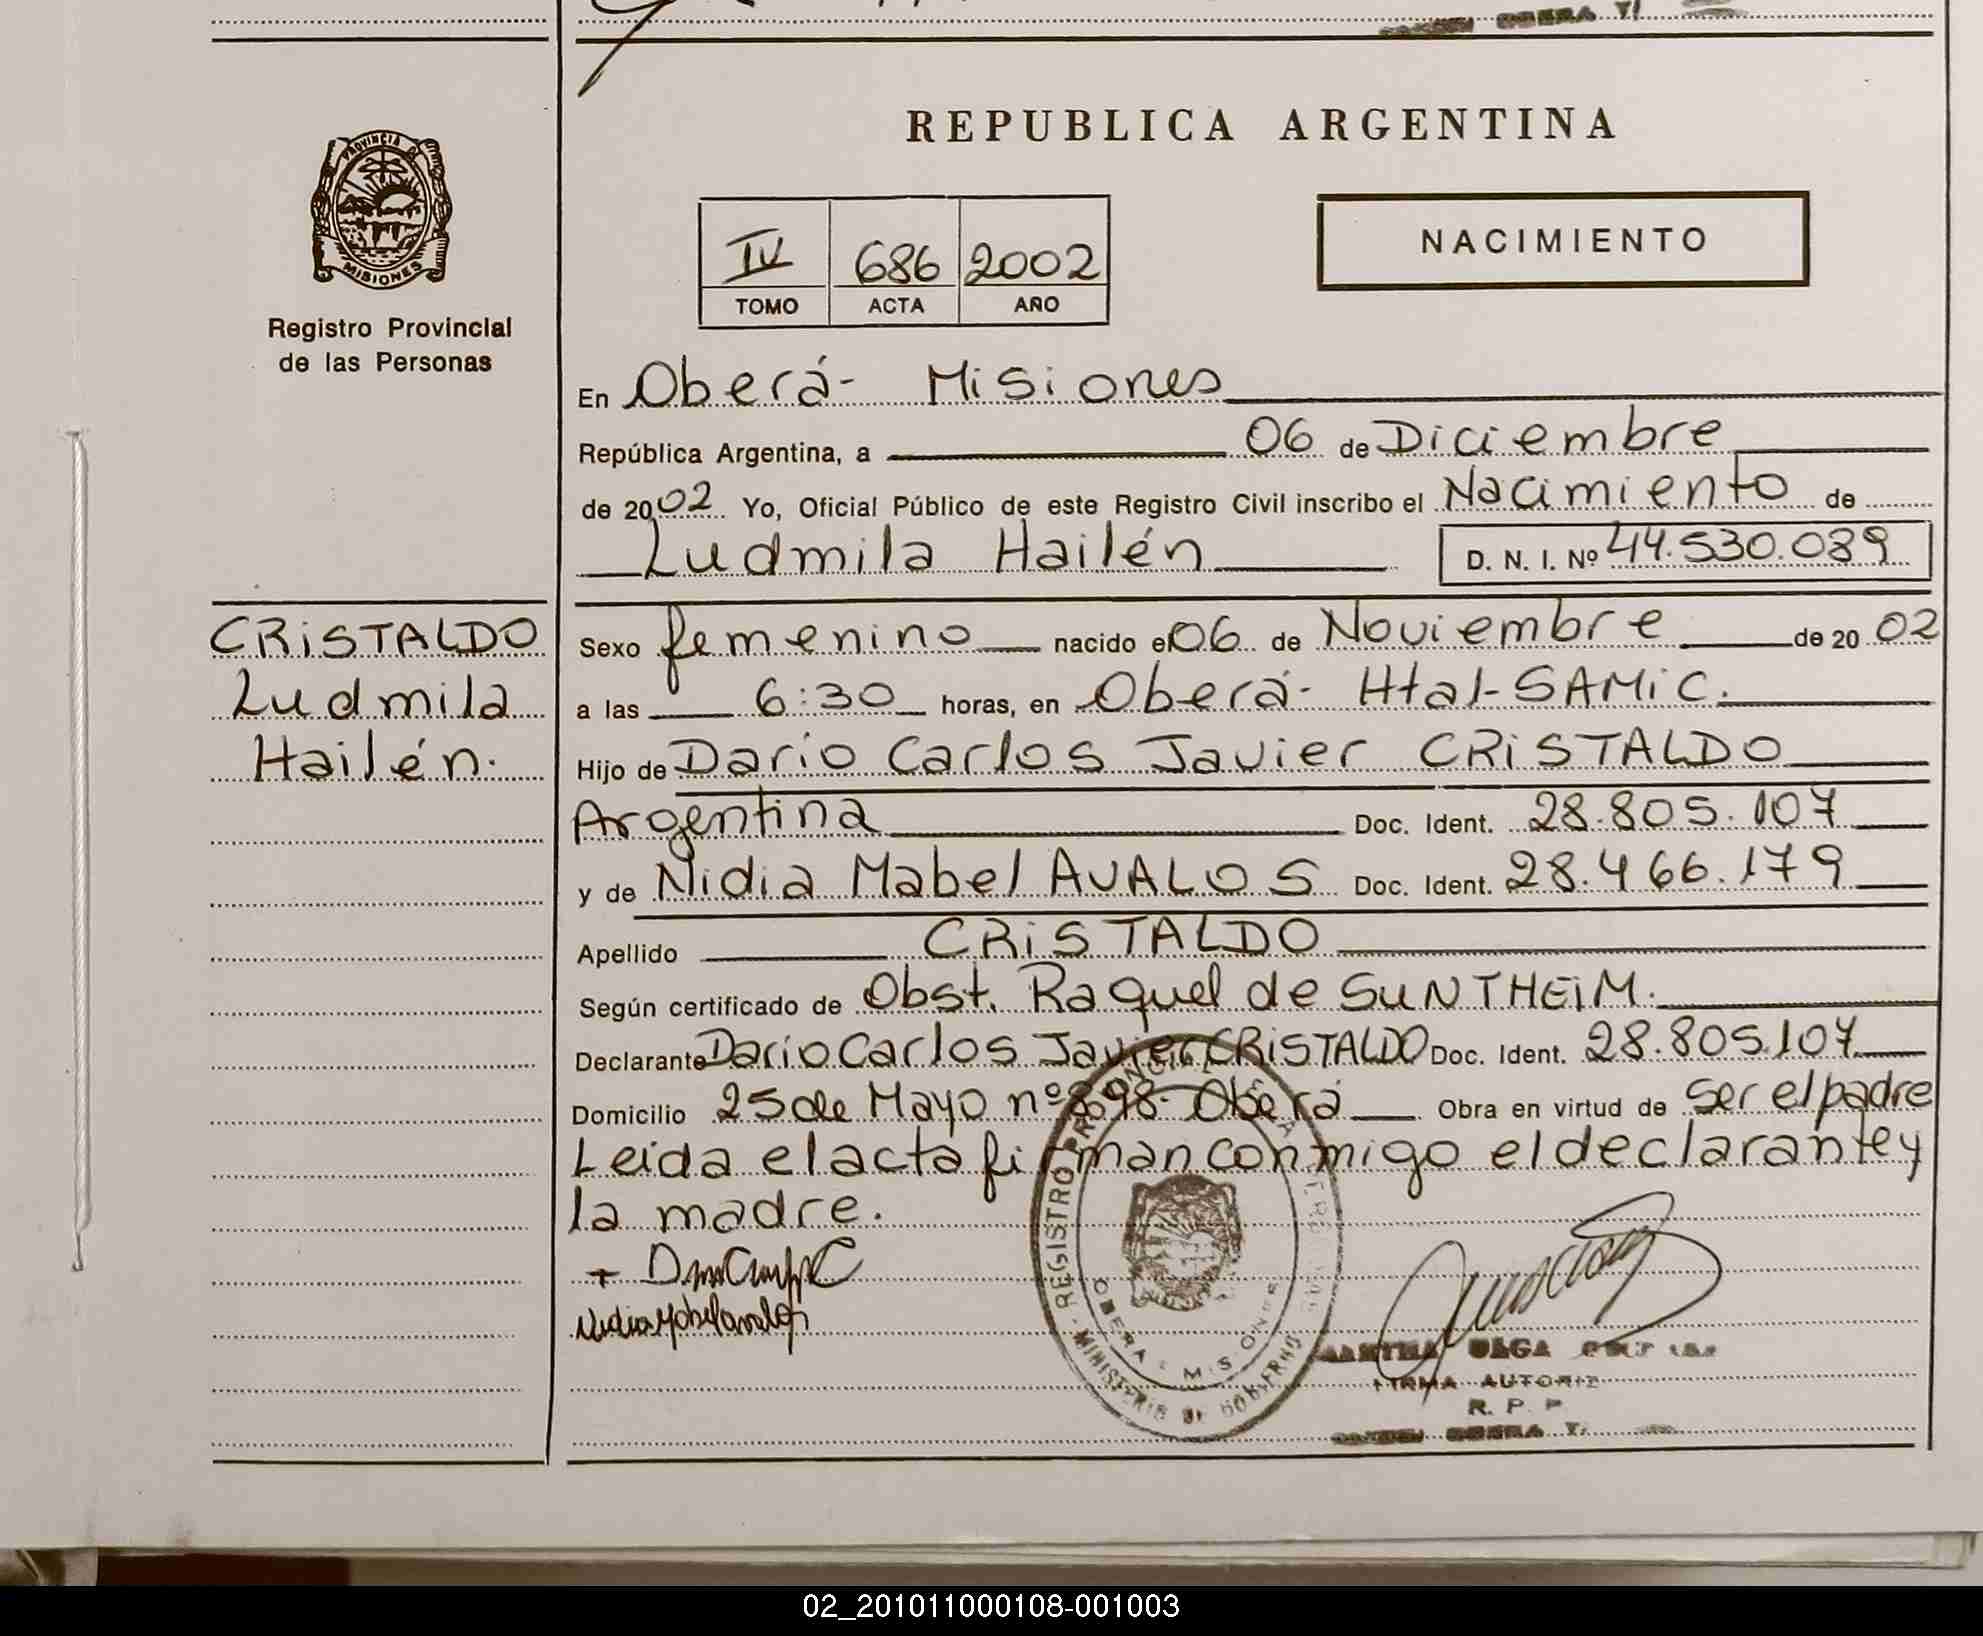 REPUBLICA ARGENTINA
PROVINCIA DE
MISIONES
Registro Provincial
de las Personas
IV 686 2002
TOMO ACTA AÑO
NACIMIENTO
En Oberá- Misiones
República Argentina, a 06 de Diciembre
de 2002 Yo, Oficial Público de este Registro Civil inscribo el Nacimiento de
Ludmila Hailén D. N. I. Nº 44.530.089
CRISTALDO
Ludmila
Hailén.
Sexo femenino nacido el 06 de Noviembre de 20 02
a las 6:30 horas, en Oberá- Htal-SAMIC.
Hijo de Darío Carlos Javier CRISTALDO
Argentina Doc. Ident. 28.805.107
y de Nidia Mabel AVALOS Doc. Ident. 28.466.179
Apellido CRISTALDO
Según certificado de Obst. Raquel de SUNTHEIM.
Declarante Darío Carlos Javier CRISTALDO Doc. Ident. 28.805.107
Domicilio 25 de Mayo nº 898- Oberá Obra en virtud de ser el padre
Leída el acta firman conmigo el declarante y
la madre.
REGISTRO PROVINCIAL
MINISTERIO DE GOBIERNO
OBERA - MISIONES
OLGA
FIRMA AUTORIZ
R. P. P
OBERA
02_201011000108-001003